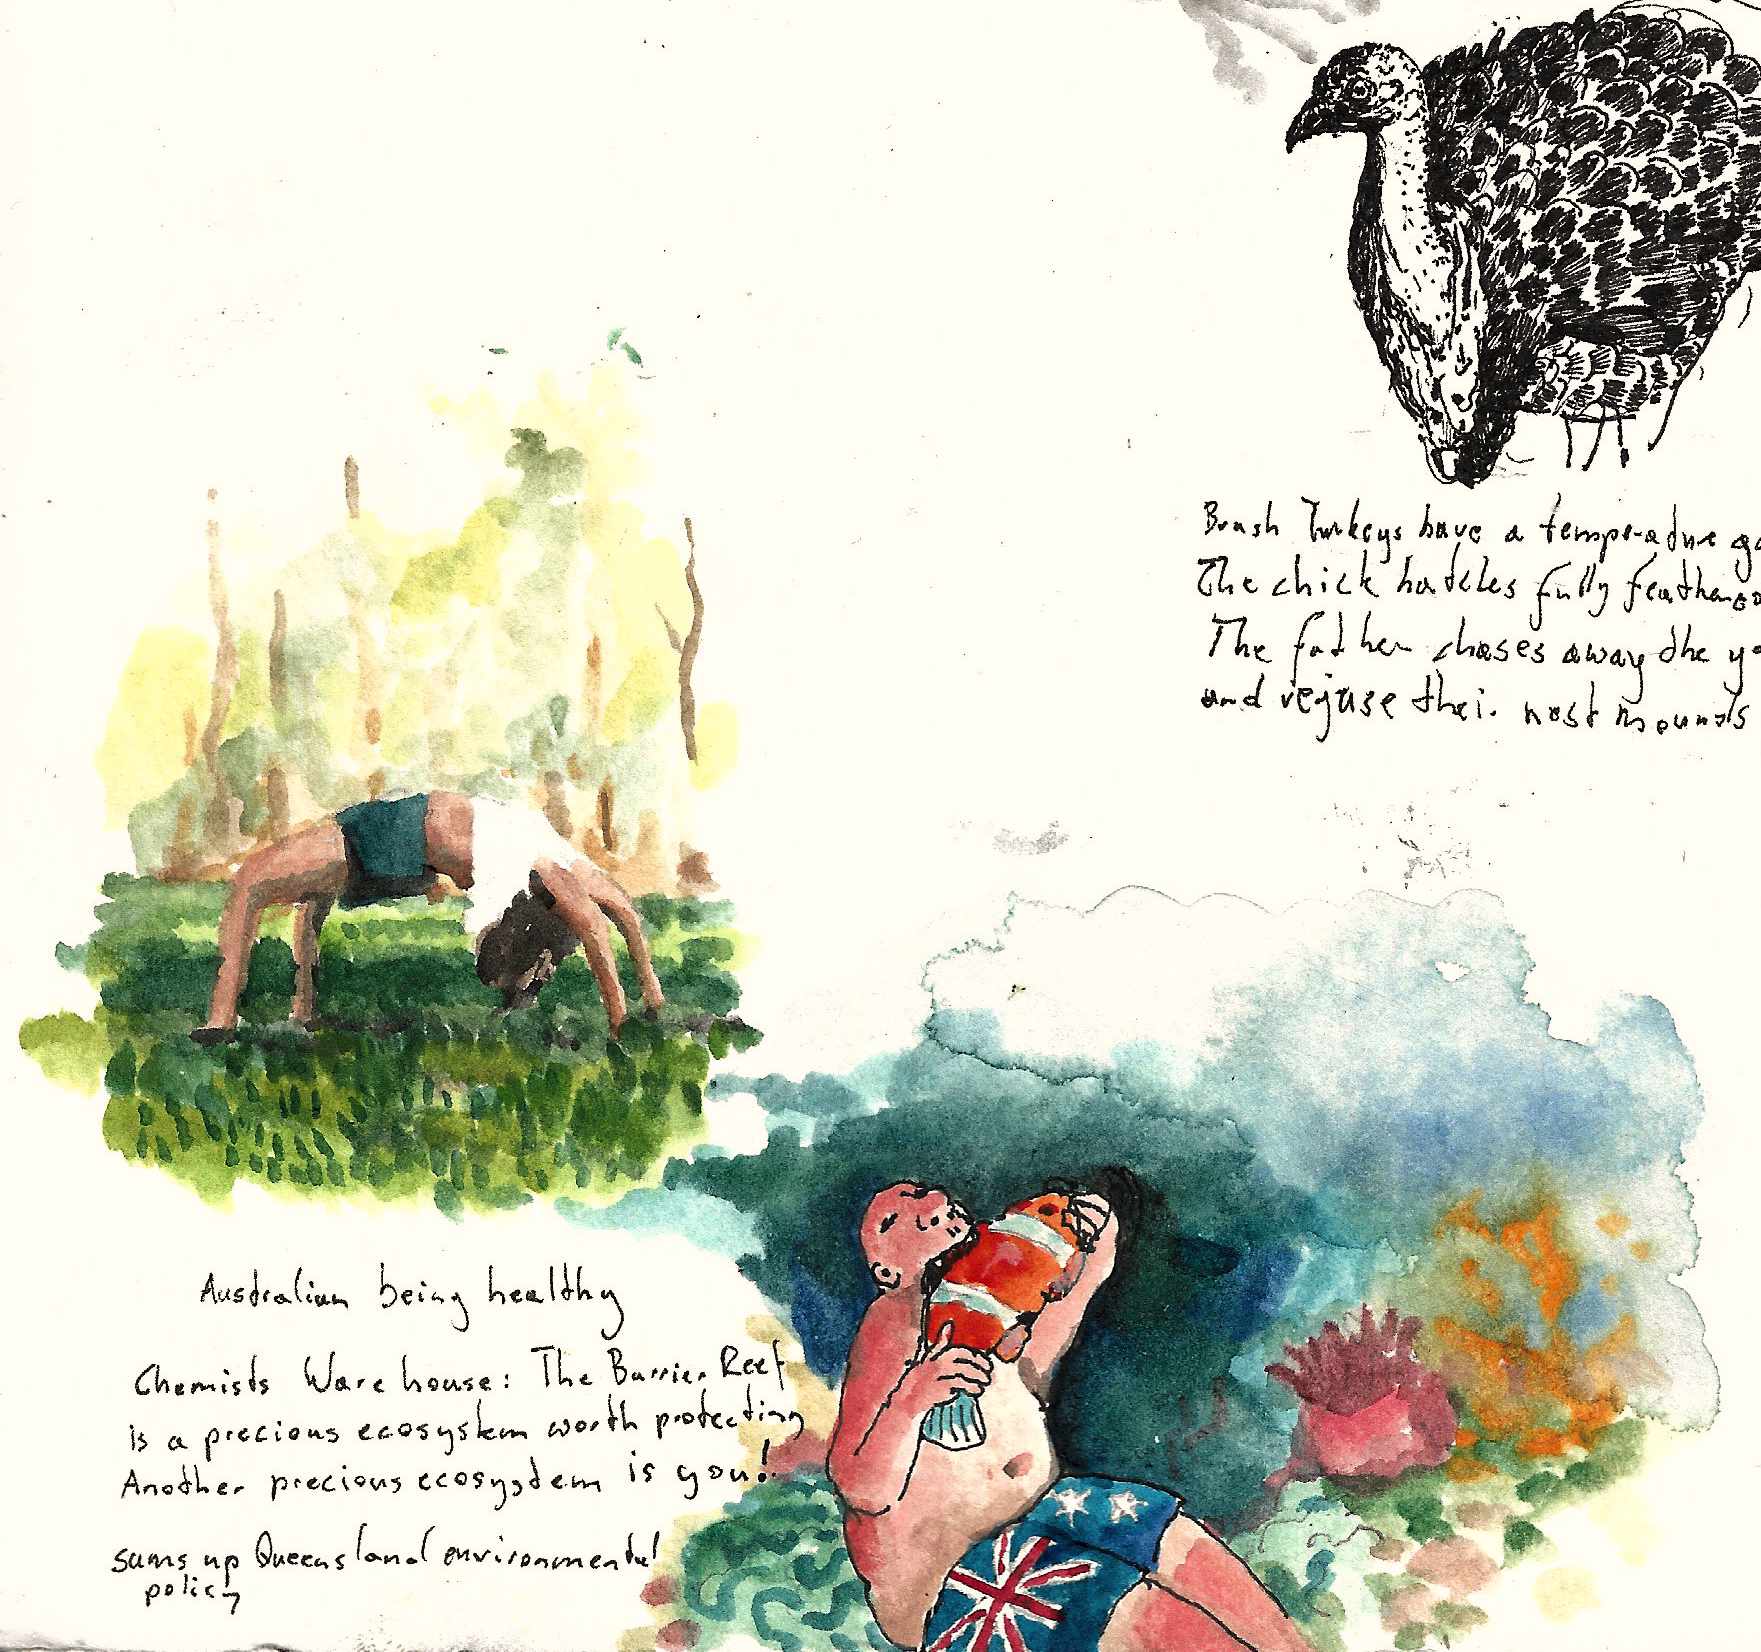 Brush Turkeys have a temperadure
The chick hatches fully feathered
The father chases away the
and rejuse their nest mounds
Australian being healthy
Chemists Warehouse: The Barrier Reef
is a precious ecosystem worth protecting
Another precious ecosystem is you!
sums up Queensland environmental
policy